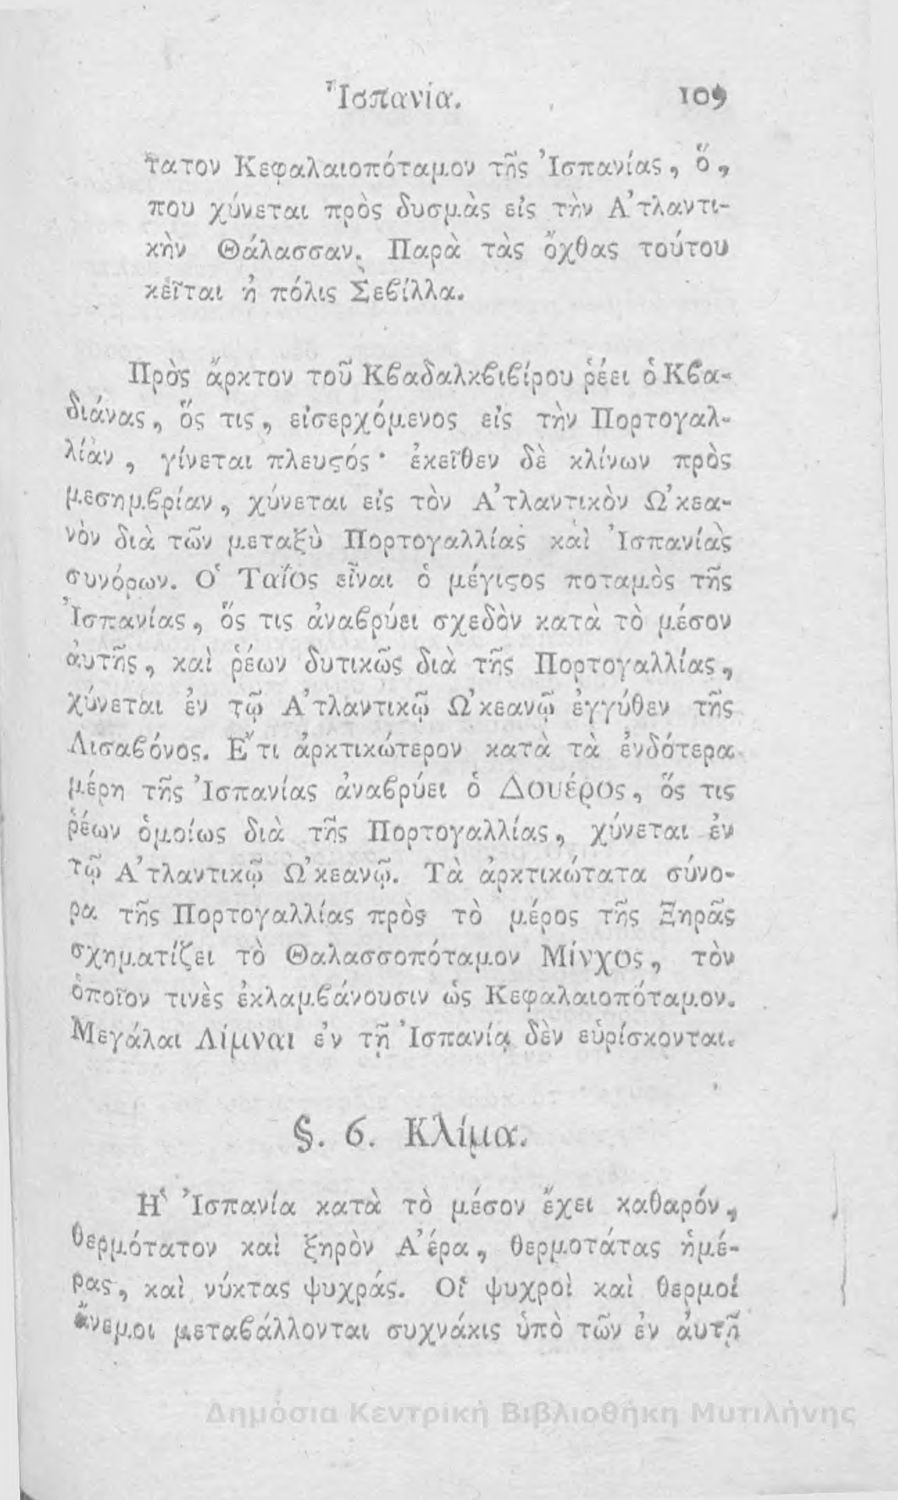 Ἱσπανία. 109
τατον Κεφαλαιοπόταμον τῆς Ἱσπανίας, ὅ,
που χύνεται πρὸς δυσμὰς εἰς τὴν Ἀτλαντι-
κὴν Θάλασσαν. Παρὰ τὰς ὄχθας τούτου
κεῖται ἡ πόλις Σεϐίλλα.
Πρὸς ἄρκτον τοῦ Κϐαδαλκϐιϐίρου ῥέει ὁ Κϐα-
διάνας, ὅς τις, εἰσερχόμενος εἰς τὴν Πορτογαλ-
λίαν, γίνεται πλευϛός· ἐκεῖθεν δὲ κλίνων πρὸς
μεσημϐρίαν, χύνεται εἰς τὸν Ἀτλαντικὸν Ὠκεα-
νὸν διὰ τῶν μεταξὺ Πορτογαλλίας καὶ Ἱσπανίας
συνόρων. Ὁ Ταΐος εἶναι ὁ μέγιϛος ποταμὸς τῆς
Ἱσπανίας, ὅς τις ἀναϐρύει σχεδὸν κατὰ τὸ μέσον
ἀυτῆς, καὶ ῥέων δυτικῶς διὰ τῆς Πορτογαλλίας,
χύνεται ἐν τῷ Ἀτλαντικῷ Ὠκεανῷ ἐγγύθεν τῆς
Λισαϐόνος. Ἔτι ἀρκτικώτερον κατὰ τὰ ἐνδότερα
μέρη τῆς Ἱσπανίας ἀναϐρύει ὁ Δουέρος, ὅς τις
ῥέων ὁμοίως διὰ τῆς Πορτογαλλίας, χύνεται ἐν
τῷ Ἀτλαντικῷ Ὠκεανῷ. Τὰ ἀρκτικώτατα σύνο-
ρα τῆς Πορτογαλλίας πρὸς τὸ μέρος τῆς Ξηρᾶς
σχηματίζει τὸ Θαλασσοπόταμον Μίνχος, τὸν
ὁποῖον τινὲς ἐκλαμϐάνουσιν ὡς Κεφαλαιοπόταμον.
Μεγάλαι Λίμναι ἐν τῇ Ἱσπανίᾳ δὲν εὑρίσκονται.
§. 6. Κλίμα.
Ἡ Ἱσπανία κατὰ τὸ μέσον ἔχει καθαρόν,
θερμότατον καὶ ξηρὸν Ἀέρα, θερμοτάτας ἡμέ-
ρας, καὶ νύκτας ψυχράς. Οἱ ψυχροὶ καὶ θερμοί
ἄνεμοι μεταϐάλλονται συχνάκις ὑπὸ τῶν ἐν ἀυτῇ
Δημόσια Κεντρική Βιβλιοθήκη Μυτιλήνης